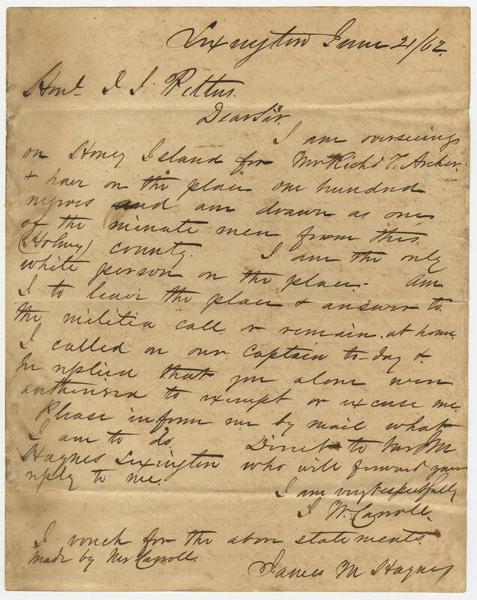 Lexington June 21/62.
Honl. J. J. Pettus.
Dear Sir
I am overseeing
on Honey Island for Mr Richd T. Archer
& have on the place one hundred
negros and am drawn as one
of the minute men from this
(Holmes) county. I am the only
white person on the place. am
I to leave the place & answer to
the militia call or remain at home
I called on our Captain to-day &
he replied that you alone were
authorised to exempt or excuse me
Please inform me by mail what
I am to do. Direct to Mr JM
Haynes Lexington who will forward your
reply to me.
I am very respectfully
J. W. Carroll.
I vouch for the above statements
made by Mr Carroll.
James M Haynes